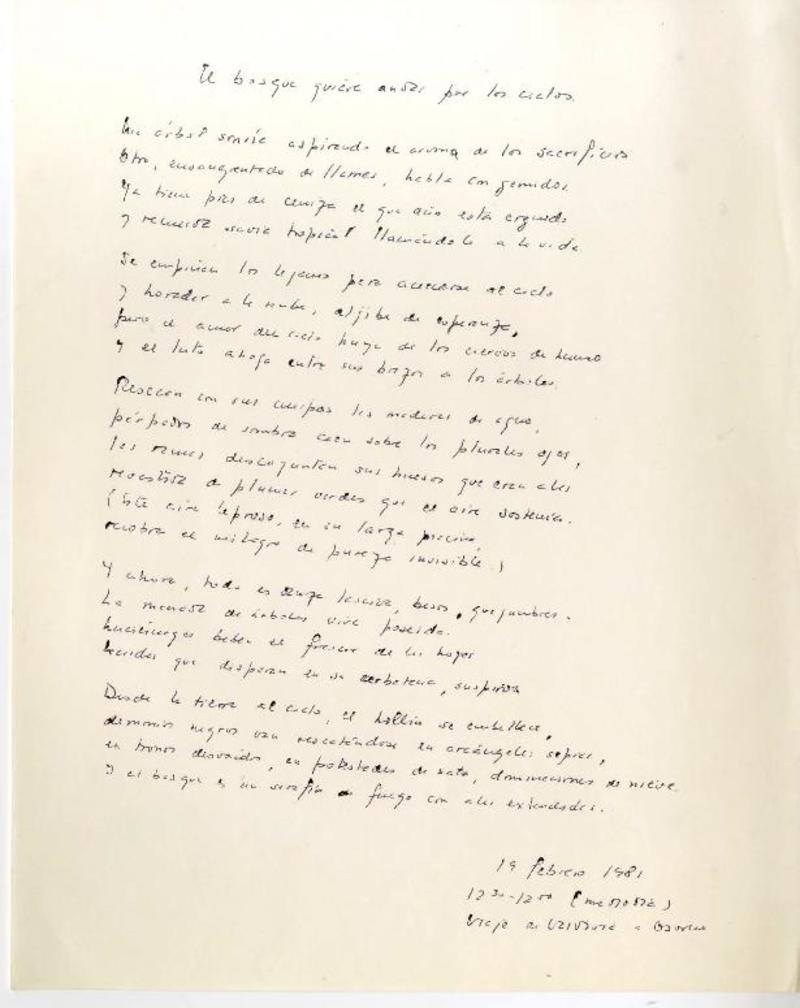 El bosque quiere andar por los cielos.
Un árbol sonríe aspirando el aroma de los sacrificios
Otro, ensangrentado de llamas, habla con gemidos.
Ya tiene pies de ceniza el que aún está erguido
y remota savia tropical llamándole a la vida.
Se empinan los lejanos para acercarse al cielo
y horadar a la nube, aljibe de esperanza,
pero el amor del cielo huye de los ciervos de humo
y el luto ahoga entre sus brazos a los árboles.
con sus cuerpos las maderas de agua,
párpados de sombra caen sobre los plurales ojos,
las ramas descoyuntan sus huesos que eran alas
de plumas verdes que el aire sostenía.
(Este aire leproso, en su larga
recobra el milagro de pureza invisible.)
Y ahora, todo es danza lasciva, besos, quejumbres.
La de árboles vive poseída.
beben el frescor de las hojas
heridas que disparan en su cerbatana, suspiros
Desde la tierra al cielo, el hollín se embellece,
demonios negros van rescatándose en arcángeles sepias,
en tronos desvaídos, en potestades de nata, dominaciones de nieve.
Y el bosque es un serafín de fuego con alas extendidas.
19 febrero 1981
12 30 - 12 50
Viaje de Valdivia a Osorno